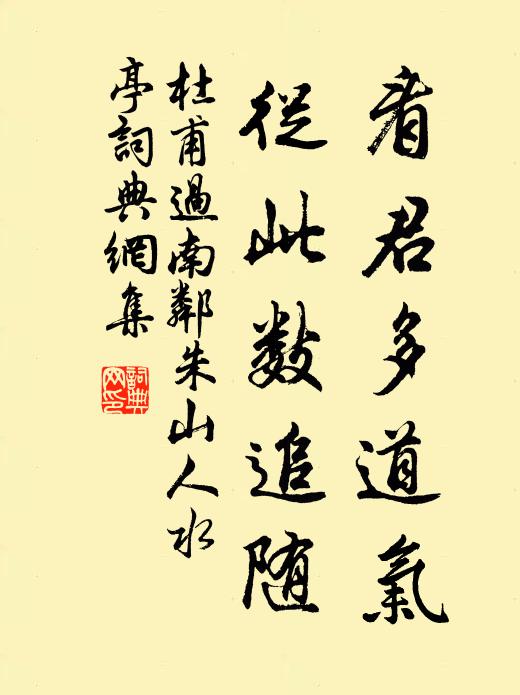 看君多道氣
從此數追随
杜甫過南鄰朱山人水
亭詞典網集
詞典
网印